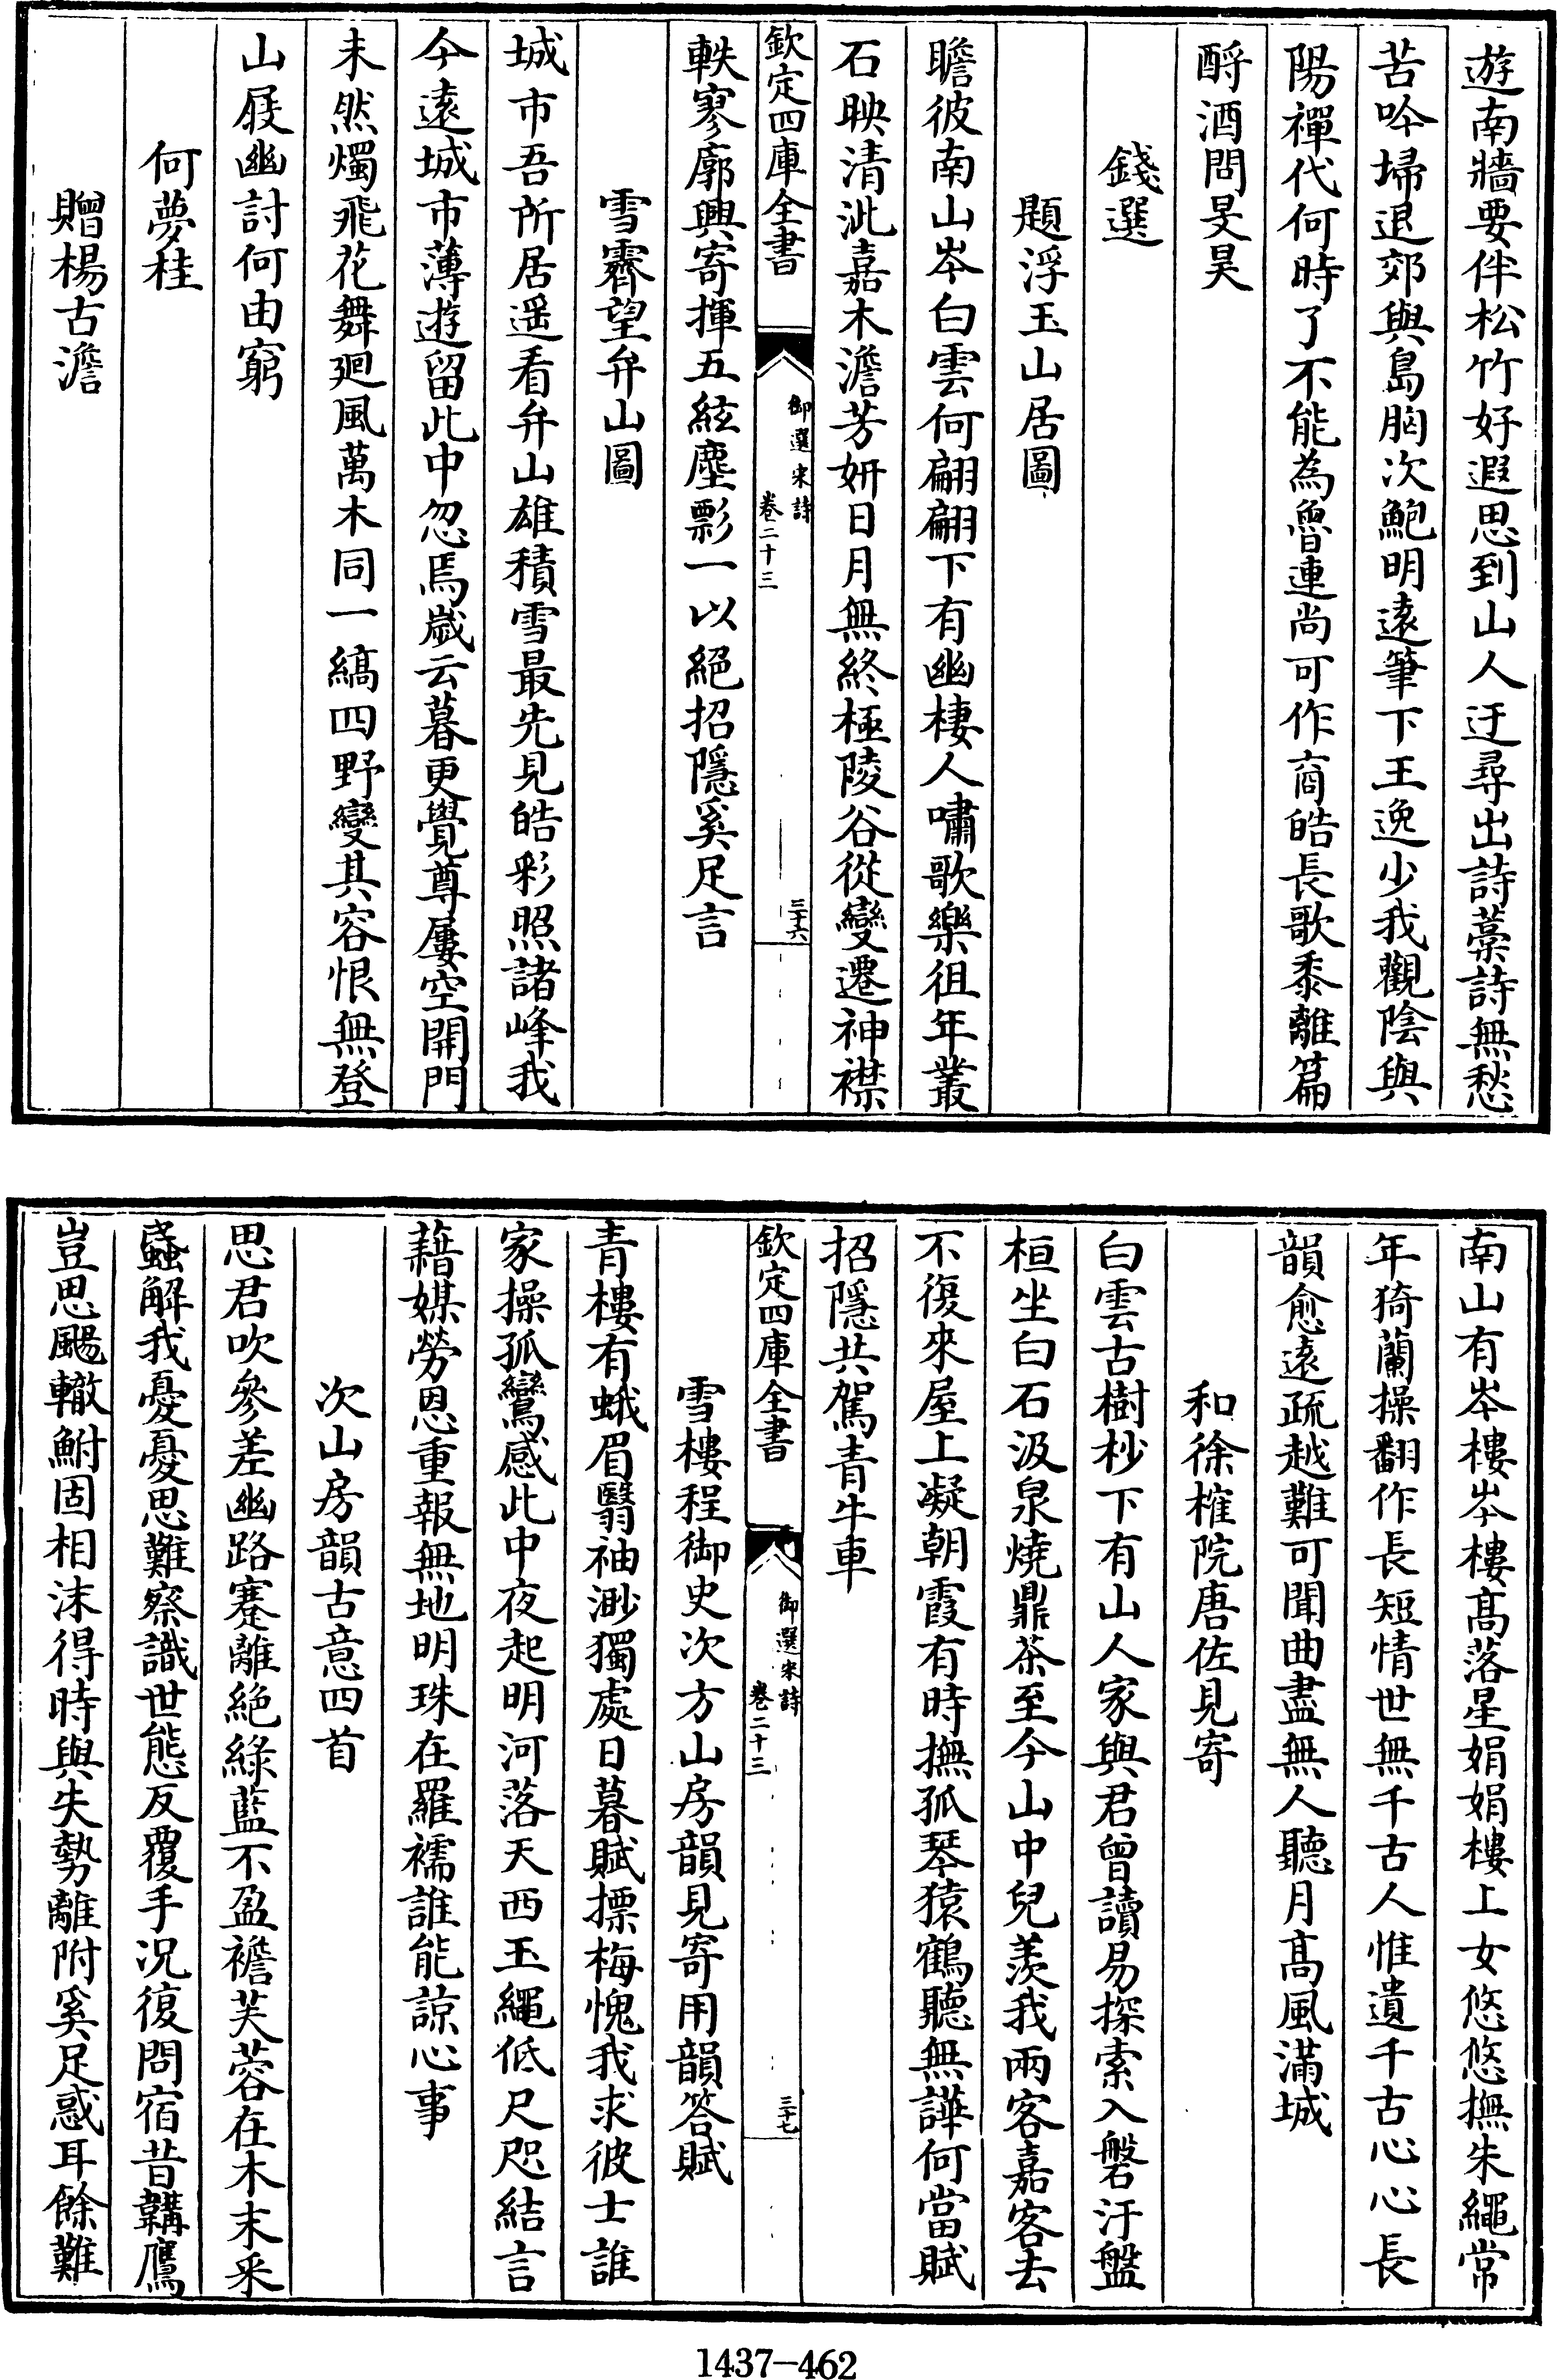 遊南牆要伴松竹好遐思到山人迂尋出詩藁詩無愁
苦吟掃退郊與島胸次鮑明遠筆下王逸少我觀陰與
陽禪代何時了不能為魯連尚可作商皓長歌黍離篇
酹酒問旻昊
錢選
題浮玉山居圖
瞻彼南山岑白雲何翩翩下有幽棲人嘯歌樂徂年叢
石映清泚嘉木澹芳妍日月無終極陵谷從變遷神襟
欽定四庫全書
御選宋詩
卷二十三
三十六
軼寥廓興寄揮五絃塵影一以絕招隱奚足言
雪霽望弁山圖
城市吾所居遥看弁山雄積雪最先見皓彩照諸峰我
今遠城市薄遊留此中忽焉嵗云暮更覺尊屢空開門
未然燭飛花舞廻風萬木同一縞四野變其容恨無登
山屐幽討何由窮
何夢桂
贈楊古澹
南山有岑樓岑樓髙落星娟娟樓上女悠悠撫朱繩常
年猗蘭操翻作長短情世無千古人惟遺千古心心長
韻愈遠疏越難可聞曲盡無人聽月髙風滿城
和徐榷院唐佐見寄
白雲古樹杪下有山人家與君曾讀易探索入磐汙盤
桓坐白石汲泉燒鼎茶至今山中兒羨我兩客嘉客去
不復來屋上凝朝霞有時撫孤琴猿鶴聽無譁何當賦
招隱共駕青牛車
欽定四庫全書
御選宋詩
卷二十三
三十七
雪樓程御史次方山房韻見寄用韻答賦
青樓有蛾眉翳袖渺獨處日暮賦摽梅愧我求彼士誰
家操孤鸞感此中夜起明河落天西玉繩低尺咫結言
藉媒勞恩重報無地明珠在羅襦誰能諒心事
次山房韻古意四首
思君吹參差幽路蹇離絕綠藍不盈襜芙蓉在木末釆
蝨解我憂憂思難察識世態反覆手况復問宿昔韝鷹
豈思颺轍鮒固相沫得時與失勢離附奚足惑耳餘難
1437-462